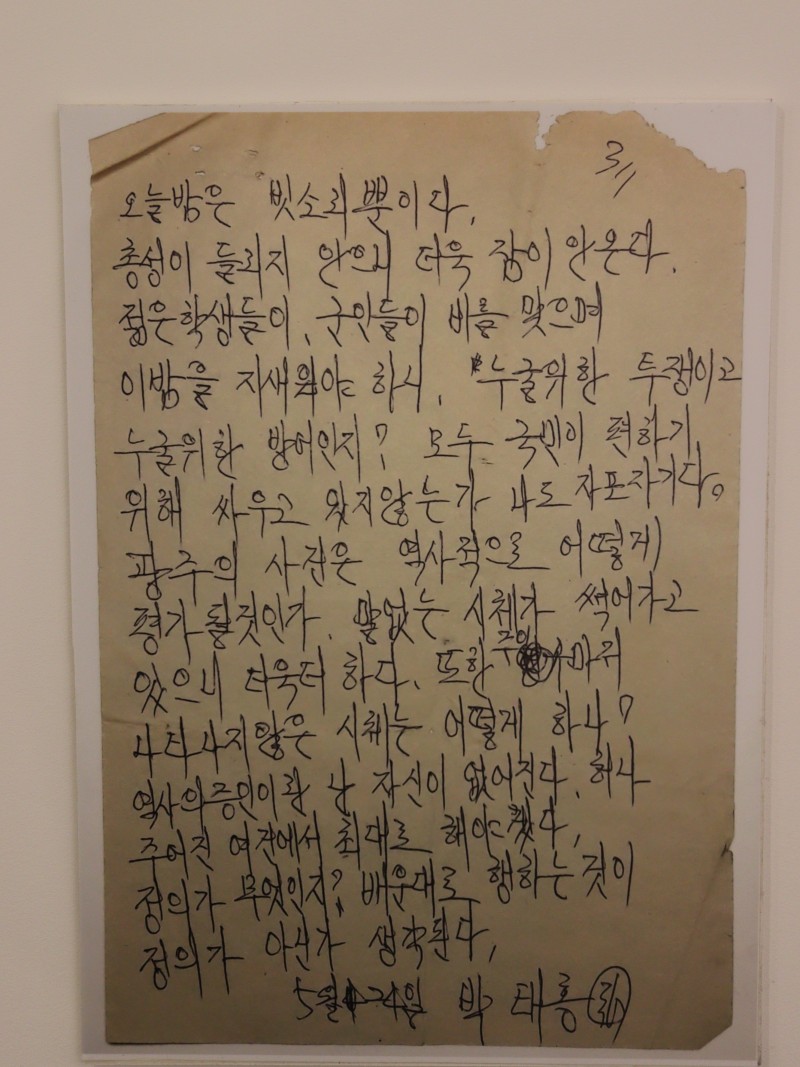 3//
오늘밤은 빗소리뿐이다.
총성이 들리지 안으니 더욱 잠이 안온다.
젊은학생들이, 군인들이 비를 맞으며
이밤을 지새워야 하니, 누굴위한 투쟁이고
누굴위한 방어인지? 모두 국민이 편하기
위해 싸우고 있지않는가 나도 자포자기다。
광주의 사진은 역사적으로 어떻게
평가 될것인가. 말없는 시체가 썩어가고
있으니 더욱더 하다. 또한 주인마저
나타나지않은 시체는 어떻게 하나?
역사의증인이란 난 자신이 없어진다. 허나
주어진 여건에서 최대로 해야겠다,
정의가 무엇인지? 배운대로 행하는것이
정의가 아닌가 생각된다,
5월 24일 박 태홍